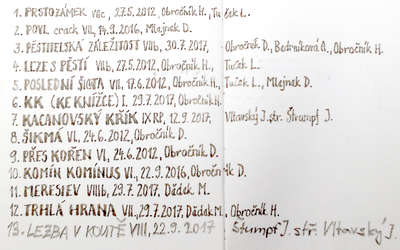 1. PRSTOZÁMEK VIIc, 27.5.2012, Obročník H., Tuček L.
2. POVL crack VII, 14.9.2016, Mlejnek D.
3. PĚSTITELSKÁ ZÁLEŽITOST VIIb, 30.7.2017, Obročník D., Bednříková A., Obročník H.
4. LEZE S PĚSTÍ VIIb, 27.5.2012, Obročník H., Tuček L.
5. POSLEDNÍ ŠICHTA VII, 17.6.2012, Obročník H., Tuček L., Mlejnek D.
6. KK (KE KNÍŽCE) I, 29.7.2017, Obročník H.
7. KACANOVSKÝ KŘÍK IX RP, 12.9.2017, Vltavský J. str. Štrumpf J.
8. ŠIKMÁ VI, 24.6.2012, Obročník D.
9. PŘES KOŘEN VI, 24.6.2012, Obročník D.
10. KOMÍN KOMÍNUS VI, 22.9.2016, Obročník D.
11. MERESJEV VIIIb, 29.7.2017, Dádek M.
12. TRHLÁ HRANA VII, 29.7.2017, Dádek M., Obročník H.
13. LEZBA V KOUTĚ VIII, 22.9.2017 Štumpf J. stř. Vltavský J.